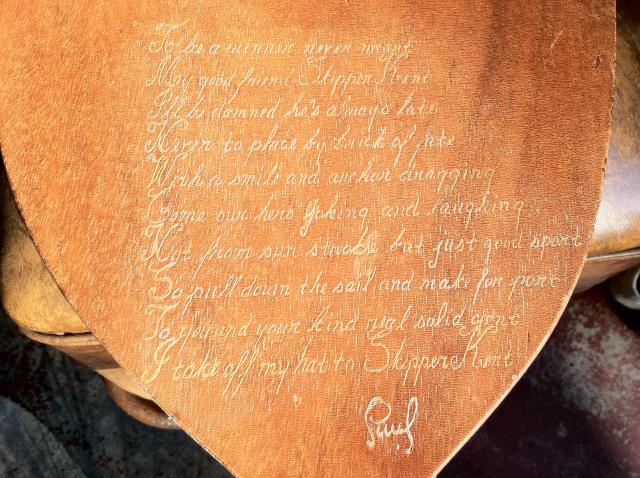 To be a winner never meant
My good friend Skipper Kent
I'll be damned he's always late
Never to place by luck of fate
With a smile and anchor dragging
Come our hero joking and laughing
Not from sun stroke but just good sport
To pull down the sail and make for port
To you and your kind real solid gent
I take off my hat to Skipper Kent